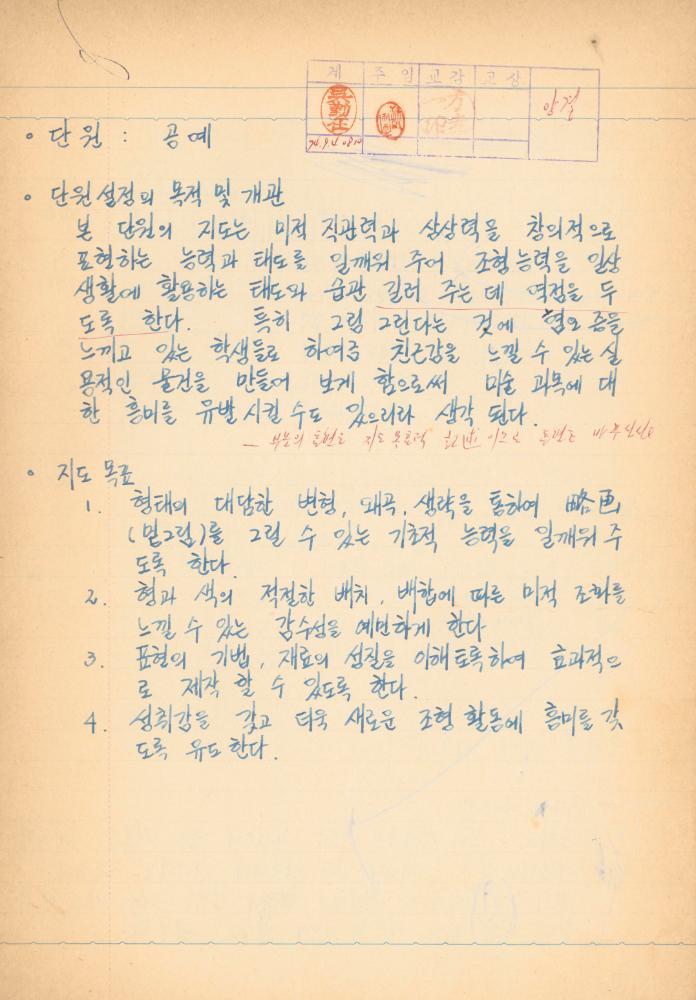 계 주임 교감 교장
전결
◦ 단원 : 공예
◦ 단원설정의 목적 및 개관
본 단원의 지도는 미적 직관력과 상상력을 창의적으로
표현하는 능력과 태도를 일깨워 주어 조형능력을 일상
생활에 활용하는 태도와 습관 길러 주는 데 역점을 두
도록 한다. 특히 그림 그린다는 것에 혐오 증을
느끼고 있는 학생들로 하여금 친근감을 느낄 수 있는 실
용적인 물건을 만들어 보게 함으로써 미술 과목에 대
한 흥미를 유발 시킬 수도 있으리라 생각 된다.
◦ 지도 목표
1. 형태의 대담한 변형, 왜곡, 생략을 통하여 略画
(밑그림)를 그릴 수 있는 기초적 능력을 일깨워 주
도록 한다.
2. 형과 색의 적절한 배치, 배합에 따른 미적 조화를
느낄 수 있는 감수성을 예민하게 한다
3. 표현의 기법, 재료의 성질을 이해토록하여 효과적으
로 제작 할 수 있도록 한다.
4. 성취감을 갖고 더욱 새로운 조형 활동에 흥미를 갖
도록 유도한다.